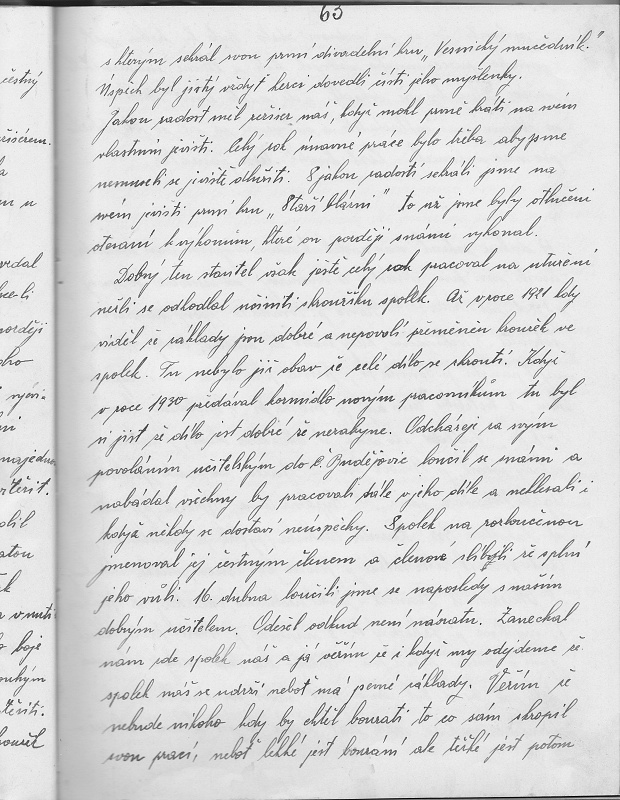 63
s kterým sehrál svou první divadelní hru „Vesnický mučedník."
Úspěch byl jistý vždyť herci dovedli čísti jeho myšlenky.
Jakou radost měl režiser náš, když mohl prvně hráti na svém
vlastním jevišti. Celý rok únavné práce bylo třeba aby jsme
nemuseli se jeviště dlužiti. S jakou radostí sehráli jsme na
svém jevišti první hru „Staří blázni" To už jsme byly otlučeni
k výkonům, které on později snámi vykonal.
Dobrý ten stavitel však ještě celý rok pracoval na utužení
nežli se odhodlal učiniti skroužku spolek. Až v roce 1921 kdy
viděl že základy jsou dobré a nepovolí přeměněn kroužek ve
spolek. Tu nebylo již obav že celé dílo se zhroutí. Když
v roce 1930 předával kormidlo novým pracovníkům tu byl
si jist že dílo jest dobré že nezahyne. Odcházeje za svým
povoláním učitelským do Č. Budějovic loučil se snámi a
nabádal všechny by pracovali stále v jeho díle a neklesali i
když někdy se dostaví neúspěchy. Spolek na rozloučenou
jmenoval jej čestným členem a členové slíbyli že splní
jeho vůli. 16. dubna loučili jsme se naposledy s naším
dobrým učitelem. Odešel odkud není návratu. Zanechal
nám zde spolek náš a já věřím že i když my odejdeme že
spolek náš se udrží neboť má pevné základy. Věřím že
nebude nikoho kdy by chtěl bourati to co sám skropil
svou prací, neboť lehké jest bourání ale těžké jest potom
čestný
žisérem.
vedal
později
oho
najednou
věřit.
atou
boje
uhým
těšiti.